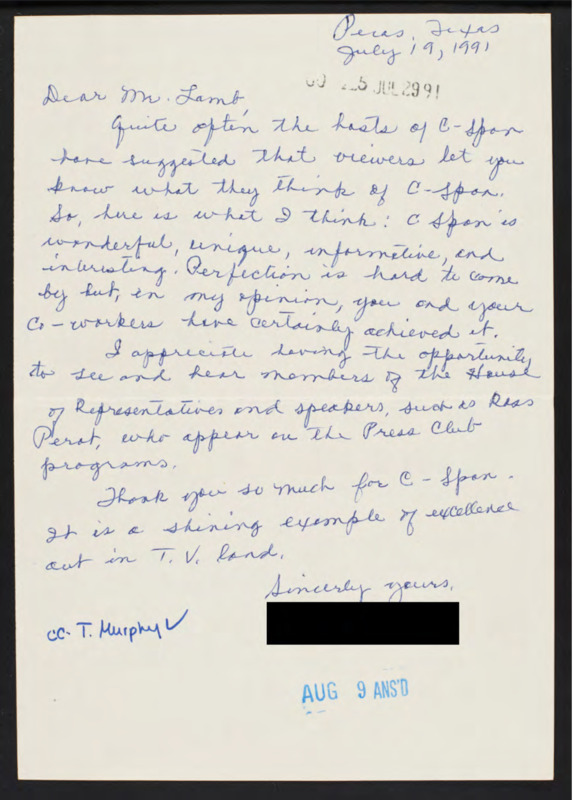 Pecos, Texas
July 19, 1991
25 JUL 29 91
Dear Mr. Lamb,
Quite often the hosts of C-Span
have suggested that viewers let you
know what they think of C-Span.
So, here is what I think: C Span is
wonderful, unique, informative, and
interesting. Perfection is hard to come
by but, in my opinion, you and your
Co-workers have certainly achieved it.
I appreciate having the opportunity
to see and hear members of the House
of Representatives and speakers, such as Ross
Perot, who appear on the Press Club
programs.
Thank you so much for C-Span.
It is a shining example of excellence
out in T.V. land.
Sincerly yours,
cc- T. Murphy ✓
AUG 9 ANS'D